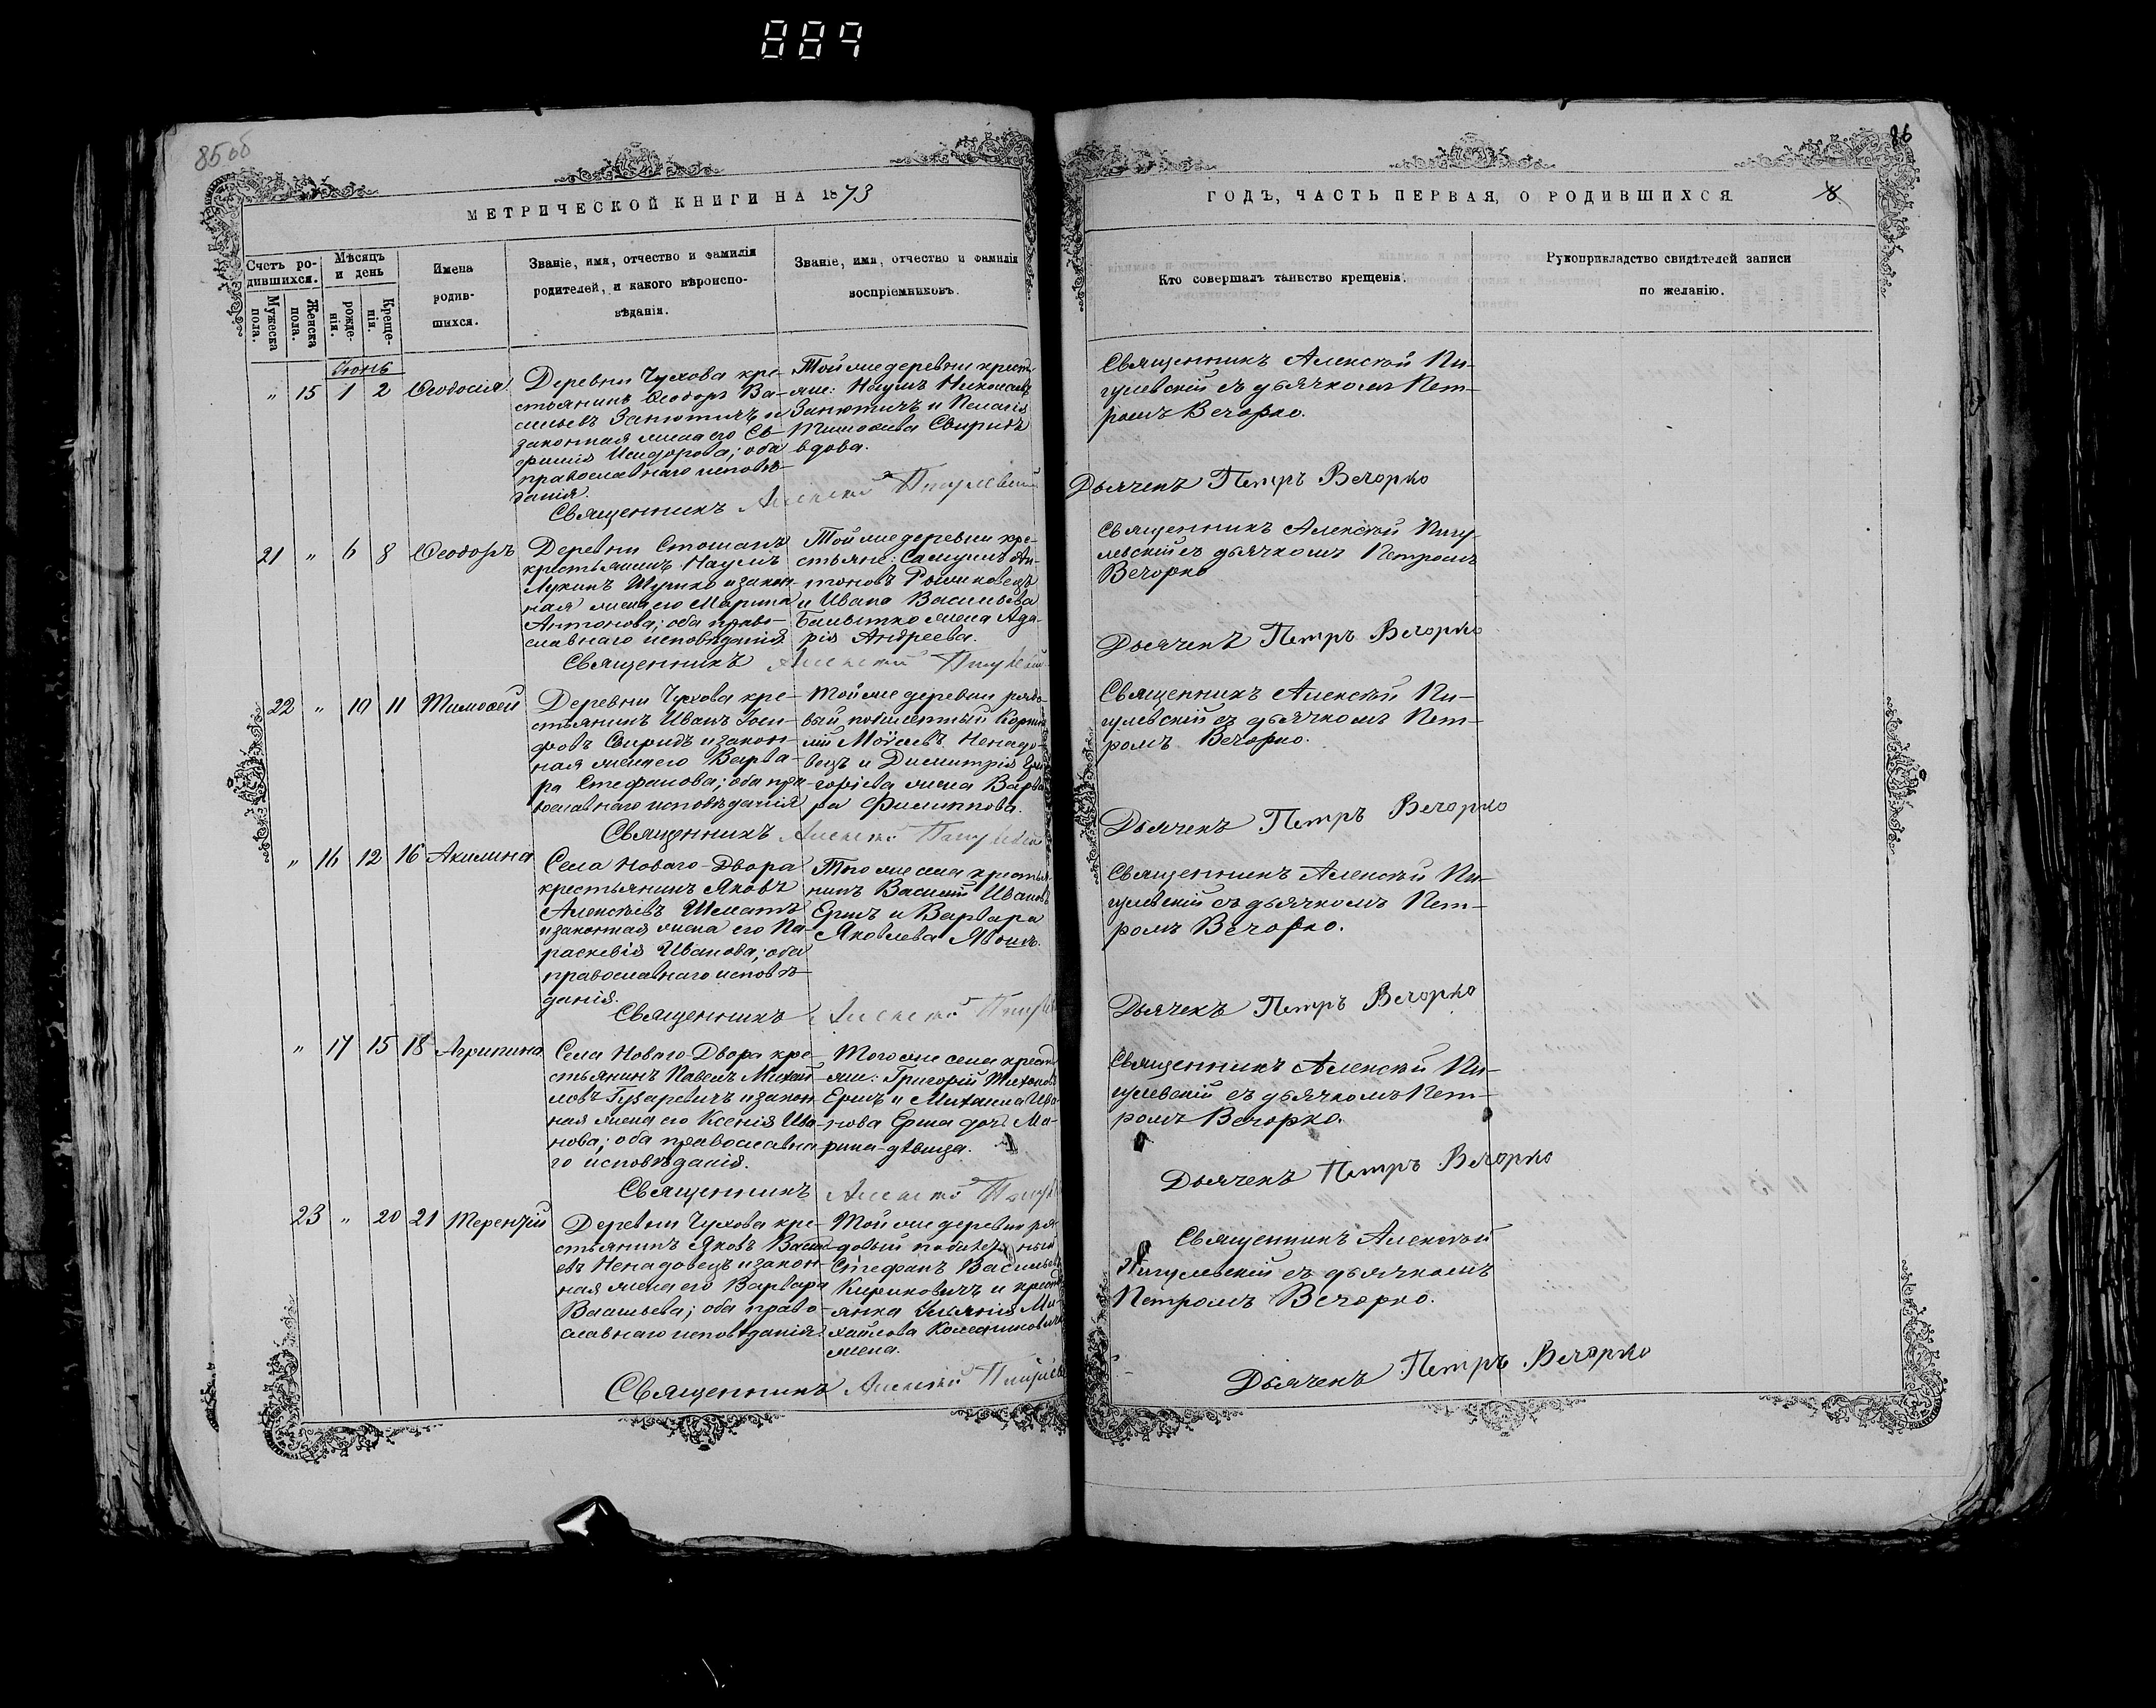 889
85об
86
МЕТРИЧЕСКОЙ КНИГИ НА 1873
ГОДЪ, ЧАСТЬ ПЕРВАЯ, О РОДИВШИХСЯ
8
Счетъ ро-
дившихся.
Мужеска
пола.
Женска
пола.
Мѣсяцъ
и день
рожде-
нія.
Креще-
нія.
Имена
родив-
шихся.
Званіе, имя, отчество и фамилія
родителей, и какого вѣроиспо-
вѣданія.
Званіе, имя, отчество и фамилія
воспріемниковъ.
Кто совершалъ таинство крещенія.
Рукоприкладство свидѣтелей записи
по желанію.
Іюнь
„ 15 1 2 Ѳеодосія
Деревни Чухова кре-
стьянинъ Ѳеодоръ Ва-
сильевъ Занютичъ и
законная жена его Ев-
фимія Исидорова; оба
православнаго исповѣ-
данія.
Той же деревни крест
яне: Наумъ Николаевъ
Занютичъ и Пелагія
Тимоѳеева Свиридъ
вдова.
Священникъ Алексѣй Пигулевскій
Священникъ Алексѣй Пи-
гулевскій съ дьячкомъ Пет-
ромъ Вечорко.
Дьячекъ Петръ Вечорко
21 „ 6 8 Ѳеодоръ
Деревни Стошанъ
крестьянинъ Наумъ
Лукинъ Шушко и закон-
ная жена его Марина
Антонова; оба право-
славнаго исповѣданія
Той же деревни кре-
стьяне: Самуилъ Ан-
тоновъ
и Ивана Васильева
жена Ада-
рія Андреева.
Священникъ Алексѣй Пигулевскій
Священникъ Алексѣй Пигу-
левскій съ дьячкомъ Петромъ
Вечорко
Дьячекъ Петръ Вечорко
22 „ 10 11 Тимоѳей
Деревни Чухова кре-
стьянинъ Иванъ Іоси-
фовъ Свиридъ и закон-
ная жена его Варва-
ра Стефанова; оба пра-
вославнаго исповѣданія
Той же деревни рядо-
вый побилетный Корни-
лій Мойсеевъ Ненадо-
вецъ и Димитрія Гри-
горіева жена Варва
ра Филиппова.
Священникъ Алексѣй Пигулевскій
Священникъ Алексѣй Пи-
гулевскій съ дьячкомъ Пет-
ромъ Вечорко.
Дьячекъ Петръ Вечорко
„ 16 12 16 Акилина
Села Новаго-Двора
крестьянинъ Яковъ
Алексѣевъ Шматъ
и законная жена его Па-
раскевія Иванова; оба
православнаго исповѣ-
данія.
Того же села крестья-
нинъ Василій Ивановъ
Ершъ и Варвара
Яковлева
Священникъ Алексѣй
Священникъ Алексѣй Пи-
гулевскій съ дьячкомъ Пет-
ромъ Вечорко.
Дьячекъ Петръ Вечорко
„ 17 15 18 Агрипина
Села Новаго-Двора кре-
стьянинъ Павелъ Михай-
ловъ Гузаревичъ и закон-
ная жена его Ксенія Ива-
нова; оба православна-
го исповѣданія.
Того же села крест
яне: Григорій Тихоновъ
Ершъ и Михаила Ива
нова Ерша дочь Ма-
рина-дѣвица.
Священникъ Алексѣй
Священникъ Алексѣй Пи-
гулевскій съ дьячкомъ Пет-
ромъ Вечорко.
Дьячекъ Петръ Вечорко
23 „ 20 21 Терентій
Деревни Чухова кре-
стьянинъ Яковъ Василь
евъ Ненадовецъ и закон-
ная жена его Варвара
Васильева; оба право-
славнаго исповѣданія
Той же деревни ря-
довый побилетный
Стефанъ Васильевъ
Кириковичъ и крест
янка Ульянія Ми-
хайлова
жена.
Священникъ Алексѣй
Священникъ Алексѣй
Пигулевскій съ дьячкомъ
Петромъ Вечорко.
Дьячекъ Петръ Вечорко